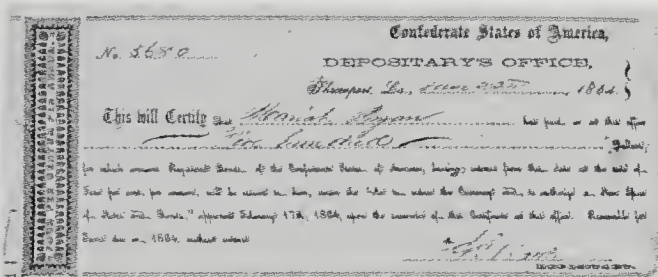 Confederate States of America,
No. 5680
DEPOSITARY'S OFFICE,
Shreveport, La., 1864.
This will Certify that Ryan has paid in at this office
Five hundred Dollars,
for which amount Registered Bonds of the Confederate States of America, bearing interest from this date at the rate of
Four per cent. per annum, will be issued to him, under the "Act to reduce the Currency and to authorize a New Issue
of Notes and Bonds," approved February 17th, 1864, upon the surrender of this Certificate at this office. Receivable for
Taxes due in 1864, without interest
DEPOSITARY.